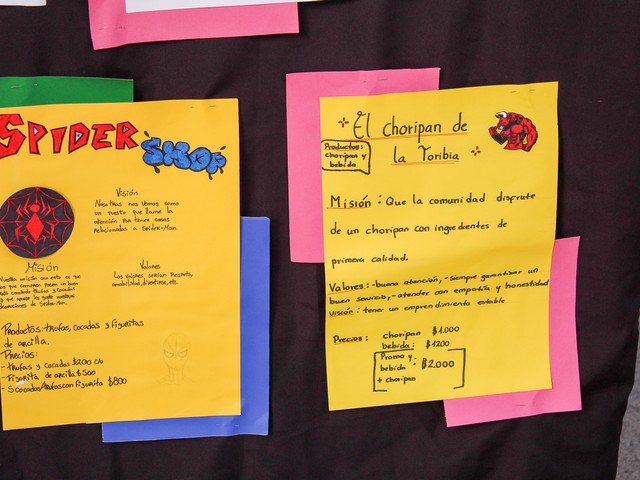 SPIDER
SHOP
Visión
Nosotras nos vemos como
un puesto que llame la
atención por tener cosas
relacionadas a Spider-Man.
Misión
Valores
Los valores serían Respeto,
amabilidad, divertirse, etc.
Productos: trufas, cocadas y figuritas
de arcilla.
Precios:
- trufas y cocadas $200 c/u
- Figurita de arcilla $500
- 5 cocadas/trufas con figurita $800
El choripan de
la Toribia
Productos:
choripan y
bebida
Misión : Que la comunidad disfrute
de un choripan con ingredientes de
primera calidad.
Valores: -buena atención, - Siempre garantizar un
buen servicio, - atender con empatía y honestidad
Visión: tener un emprendimiento estable
Precios: choripan $1.000
bebida: $1200
Promo y.
bebida : $2.000
+ choripan